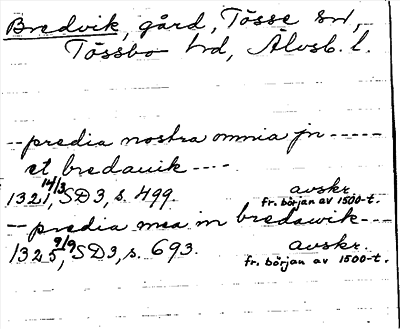 Bredvik, gård, Tösse sn,
Tössbo hd, Älvsb. l.
-- predia nostra omnia jn -----
et bredauik ----
1321 14/3, SD3, s. 499. avskr.
fr. början av 1500-t.
-- predia mea in bredawik ---
1325 9/9, SD3, s. 693. avskr.
fr. början av 1500-t.